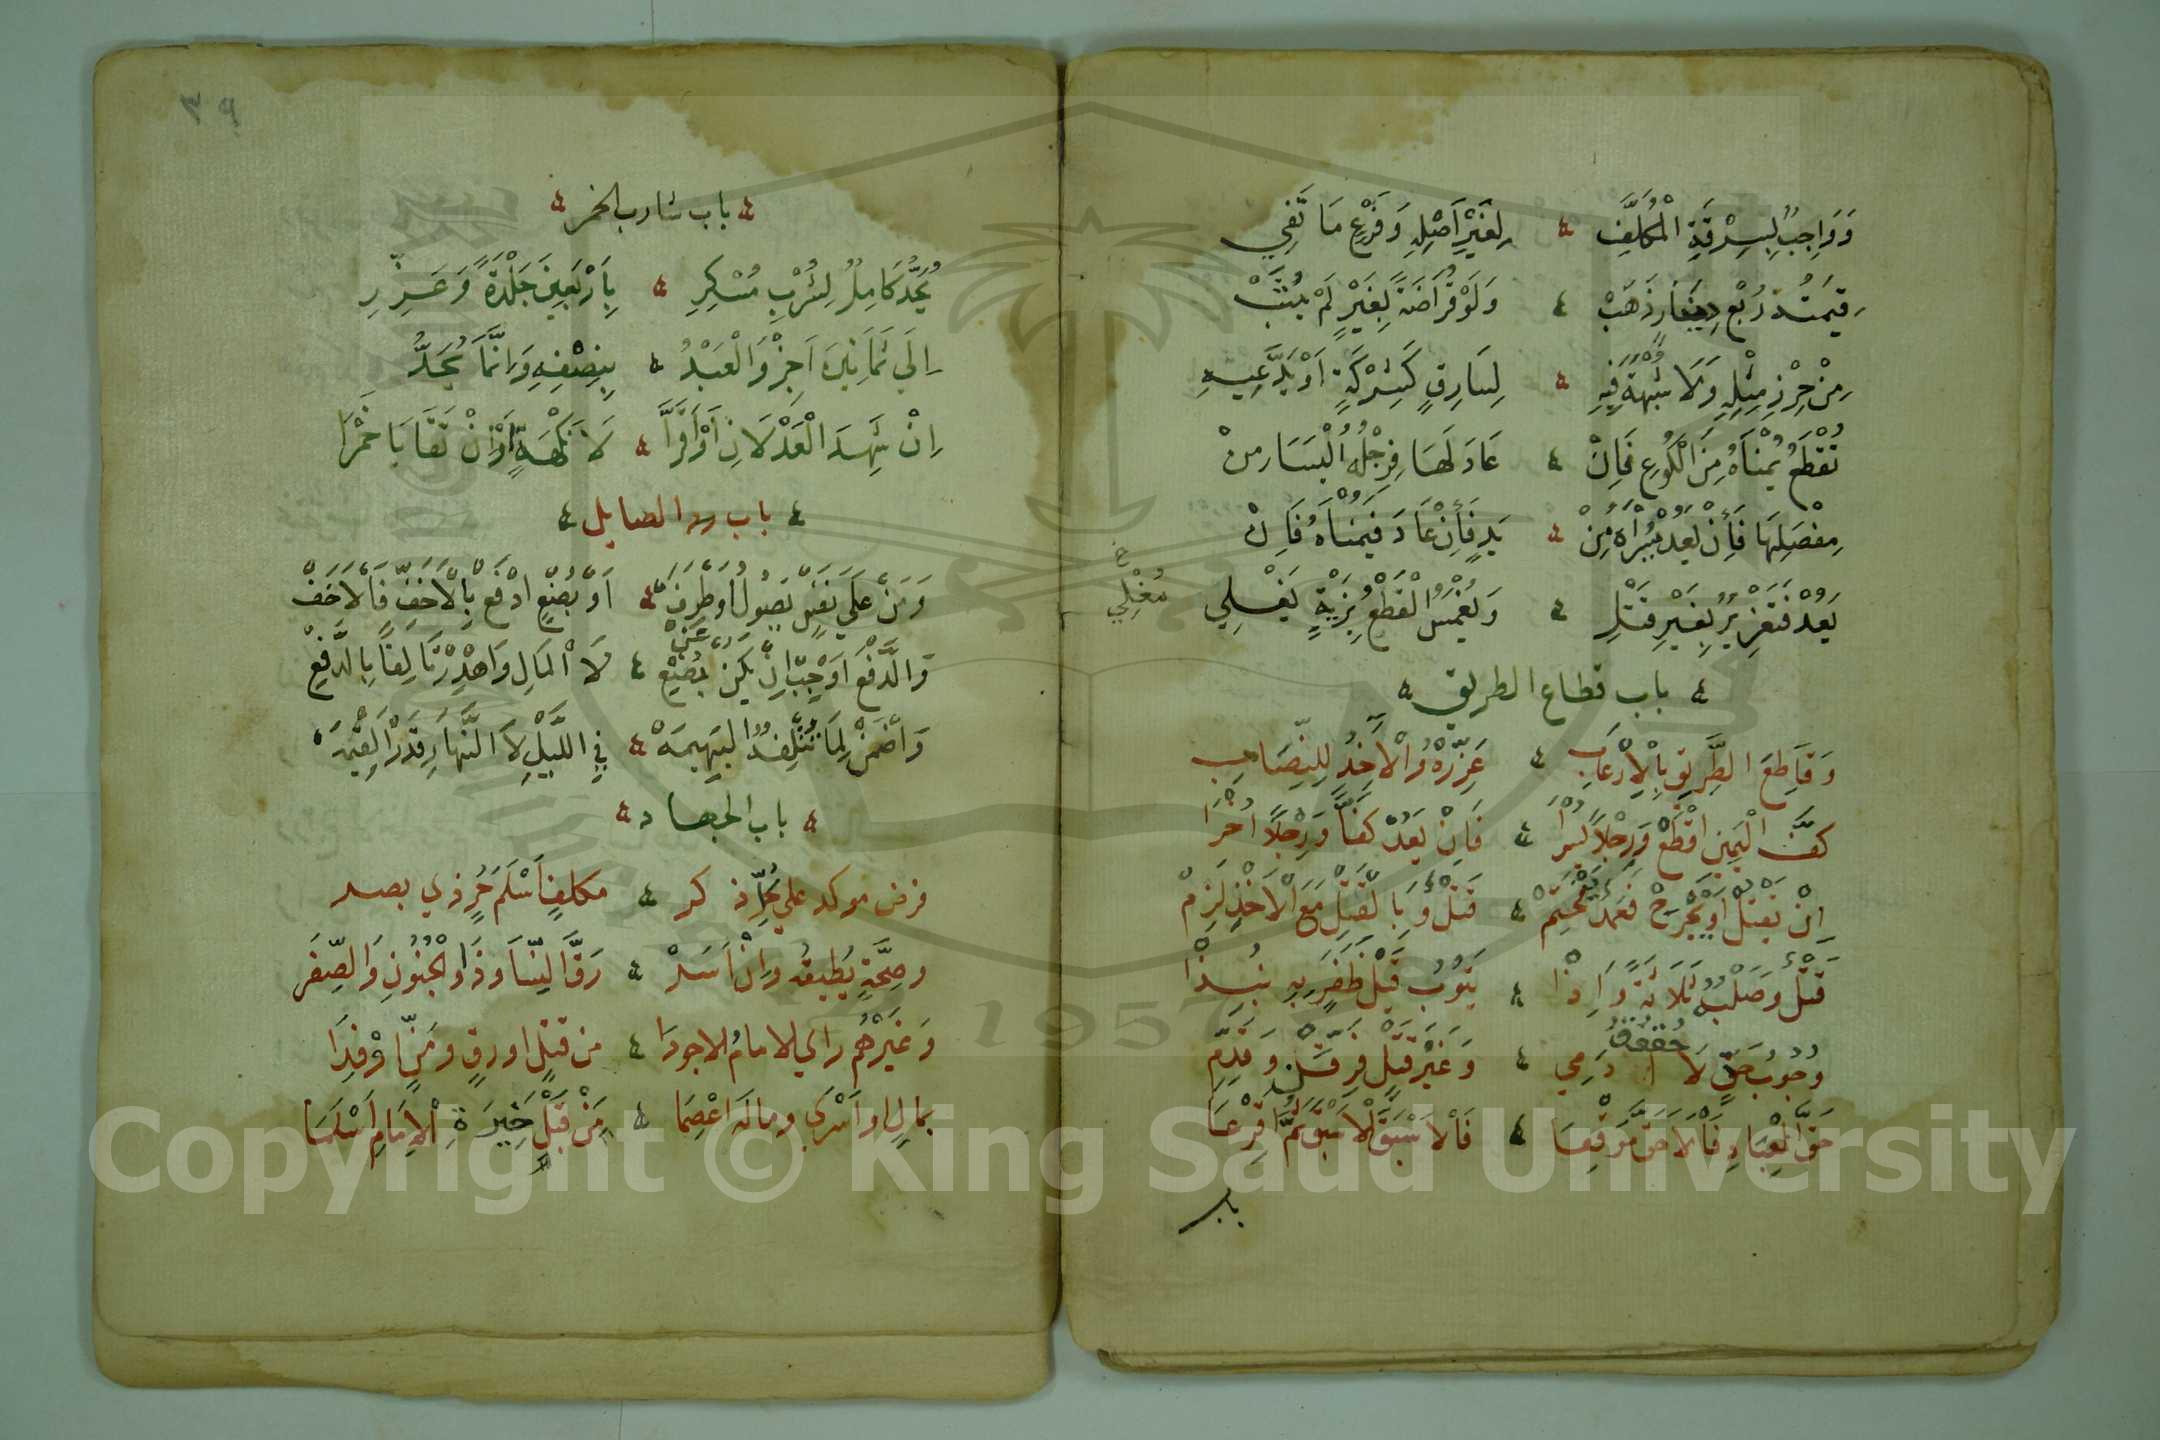 وَوَاجِبٌ لِسِرْقَةِ الْمُكَلَّفِ ؞ لِغَيْرِ أَصْلِهِ وَفَرْعٍ مَا تَفِي
قِيمَتُهُ رُبْعَ دِينَارٍ ذَهَبْ ؞ وَلَوْ قُرَاضَةً بِغَيْرٍ لَمْ يُشَبْ
مِنْ حِرْزِ مِثْلِهِ وَلَا شُبْهَةَ فِيهِ ؞ لِسَارِقٍ كَشِرْكَةٍ أَوْ يَدَّعِيهِ
تُقْطَعُ يُمْنَاهُ مِنَ الْكُوعِ فَإِنْ ؞ عَادَ لَهَا فَرِجْلُهُ الْيَسَارُ مِنْ
مِفْصَلِهَا فَإِنْ يَعُدْ يُسْرَاهُ مِنْ ؞ يَدٍ فَإِنْ عَادَ فَيُمْنَاهُ فَإِنْ
يَعُدْ فَتَعْزِيرٌ بِغَيْرِ قَتْلِ ؞ وَيُغْمَسُ الْقَطْعُ بِزَيْتٍ يَغْلِي
خ
مُغْلِي
باب قطاع الطريق
وَقَاطِعَ الطَّرِيقِ بِالْإِرْعَابِ ؞ عَزِّرْهُ وَالْآخِذُ لِلنِّصَابِ
كَفَّ الْيَمِينِ اقْطَعْ وَرِجْلًا يُسْرَا ؞ فَإِنْ يَعُدْ كَفًّا وَرِجْلًا أُخْرَا
إِنْ يَقْتُلْ أَوْ يَجْرَحْ فَعَمْدٌ يَنْحَتِمْ ؞ قَتْلٌ وَبِالْقَتْلِ مَعَ الْأَخْذِ لَزِمْ
قَتْلٌ وَصَلْبُهُ ثَلَاثَةً وَإِذَا ؞ يَتُوبُ قَبْلَ ظَفَرٍ بِهِ نُبِذَا
حُقُوقُ
وُجُوبُ حَدٍّ لَا دَمِي ؞ وَغَيْرَ قَتْلٍ فَرِّقَنْ وَقَدِّمِ
حَقَّ الْعِبَادِ فَالْأَخَفَّ مَوْقِعَا ؞ فَالْأَسْبَقَ الْأَسْبَقَ ثُمَّ أَقْرِعَا
باب
٣٩
باب شارب الخمر
يُحَدُّ كَامِلٌ لِشُرْبِ مُسْكِرِ ؞ بِأَرْبَعِينَ جَلْدَةً وَعَزِّرِ
إِلَى ثَمَانِينَ أَجِزْ وَالْعَبْدُ ؞ بِنِصْفِهِ وَإِنَّمَا يُحَدُّ
إِنْ شَهِدَ الْعَدْلَانِ أَوْ أَقَرَّا ؞ لَا نَكْهَةٍ أَوْ إِنْ تَقَايَا خَمْرَا
باب رد الصايل
وَمَنْ عَلَى نَفْسٍ يَصُولُ أَوْ طَرَفْ ؞ أَوْ بُضْعٍ ادْفَعْ بِالْأَخَفِّ فَالْأَخَفْ
وَالدَّفْعَ أَوْجِبْ إِنْ يَكُنْ عَنْ بُضْعِ ؞ لَا الْمَالِ وَاهْدِرْ تَالِفًا بِالدَّفْعِ
وَاضْمَنْ لِمَا تُتْلِفُهُ الْبَهِيمَهْ ؞ فِي اللَّيْلِ لَا النَّهَارِ قَدْرَ الْقِيمَهْ
باب الجهاد
فرض موكد على كُلِّ ذكر ؞ مكلفٍ أَسْلَمَ حُرٍّ ذي بصر
وصِحَّةٍ يُطيقه وإِنْ أَسَرْ ؞ رَقَّ النِّسَا وذَا الْجُنُونِ وَالصِّغَرْ
وَغَيْرَهُم رأى الامامُ الاجودَا ؞ من قتلٍ او رقٍ ومَنٍّ أوْ فِدَا
بمالٍ او أَسْرَى وماله اعْصِمَا ؞ مَنْ قَبْلَ خِيرَةِ الْإِمَامِ أَسْلَمَا